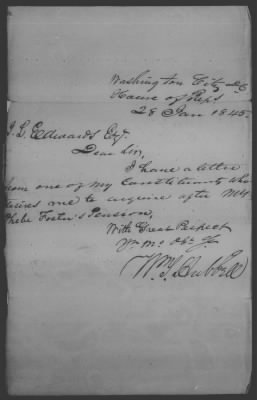 Washington City DC
House of Reps
28 Jan 1845.
J. L. Edwards Esqr
Dear Sir,
I have a letter
from one of my Constituents who
desires me to enquire after Mrs
Phebe Foster's Pension,
With Great Respect
Yr. Mo. Obt. 
Wm. S. Hubbell